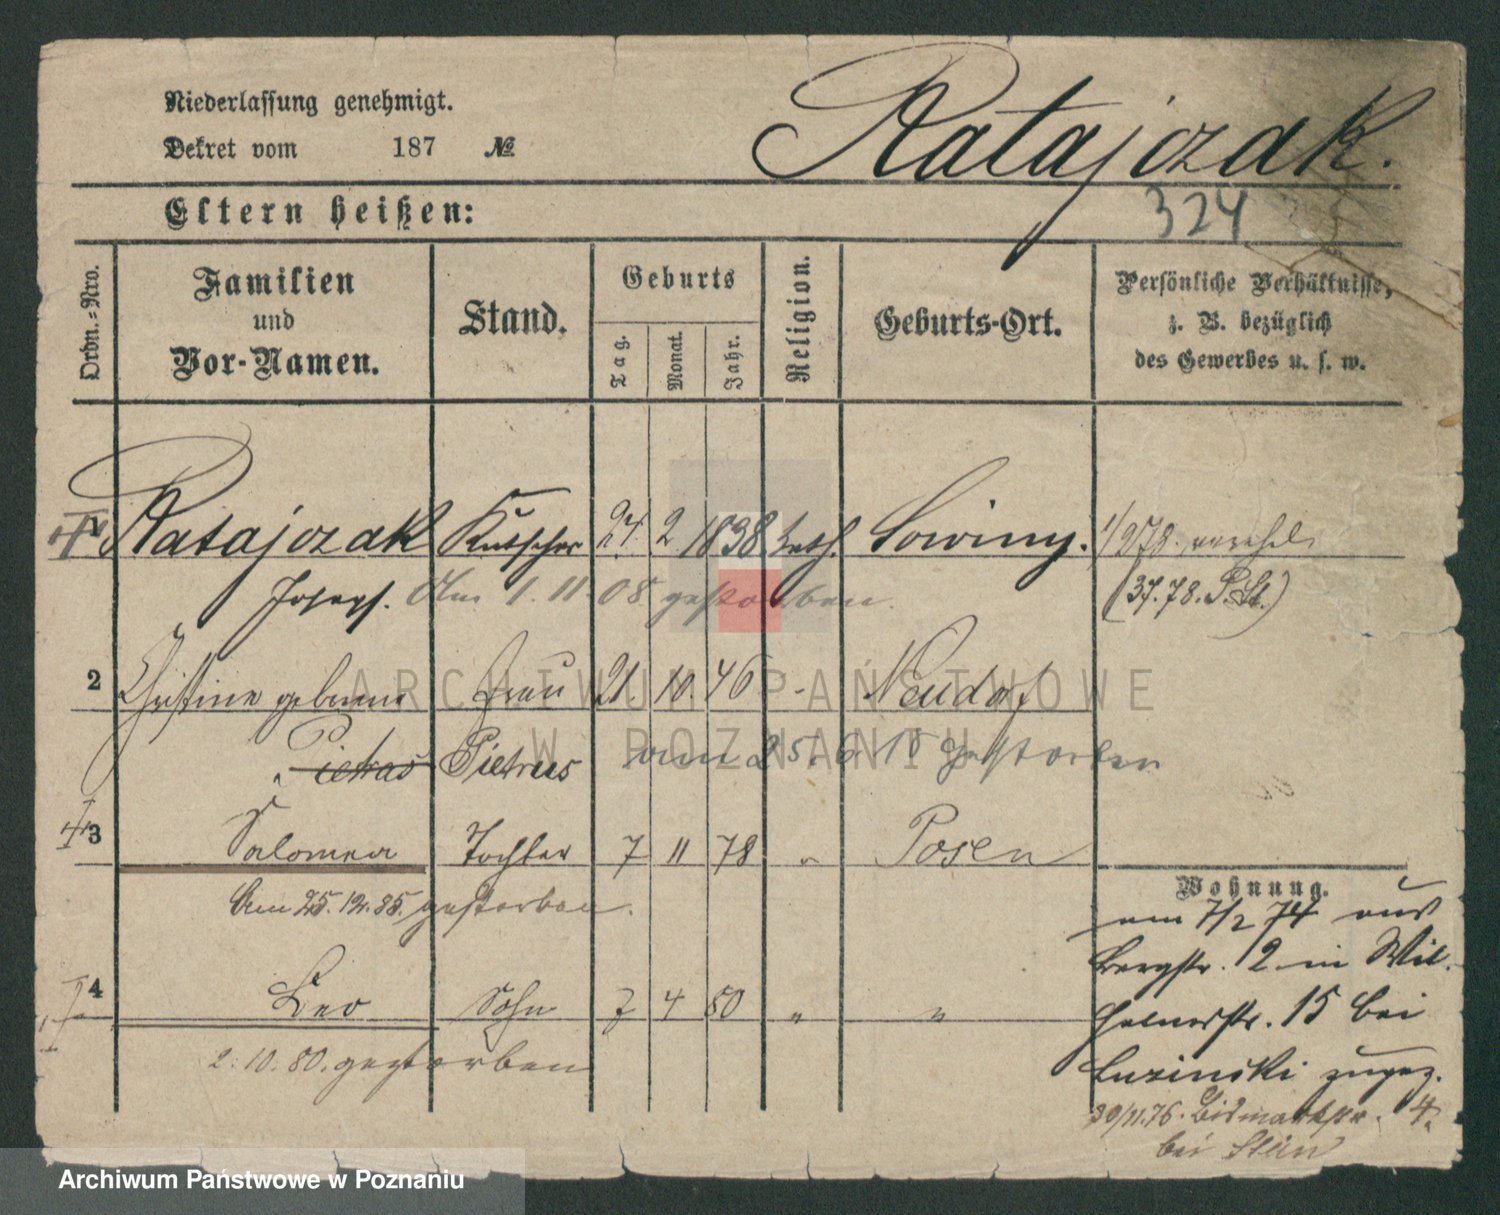 Niederlassung genehmigt.
Dekret vom 187 №
Ratajczak.
Eltern heißen:
324
Ordn.-Nro.
Familien und Vor-Namen.
Stand.
Geburts
Tag.
Monat.
Jahr.
Religion.
Geburts-Ort.
Persönliche Verhältnisse,
z. B. bezüglich
des Gewerbes u. s. w.
1 Ratajczak Kutscher 24. 2 1838 kath. 1/2 78.
Josef. Am 1.11.08 gestorben. (37.78. P. St.)
2 Christine geborene Frau 21. 10. 46 - Neudorf
Pietras Pietrus am 25.6.15 gestorben
3 Salomea Tochter 7 11 78 " Posen
Am 25.12.85. gestorben.
4 Leo Sohn 7 4 80 " "
2.10.80. gestorben
Wohnung.
am 7/2 74 aus
Bergstr. 2 in Wil-
helmstr. 15 bei
Luzinski zugez.
30/11.76. Bismarckstr. 4.
bei
ARCHIWUM PAŃSTWOWE
W POZNANIU
Archiwum Państwowe w Poznaniu